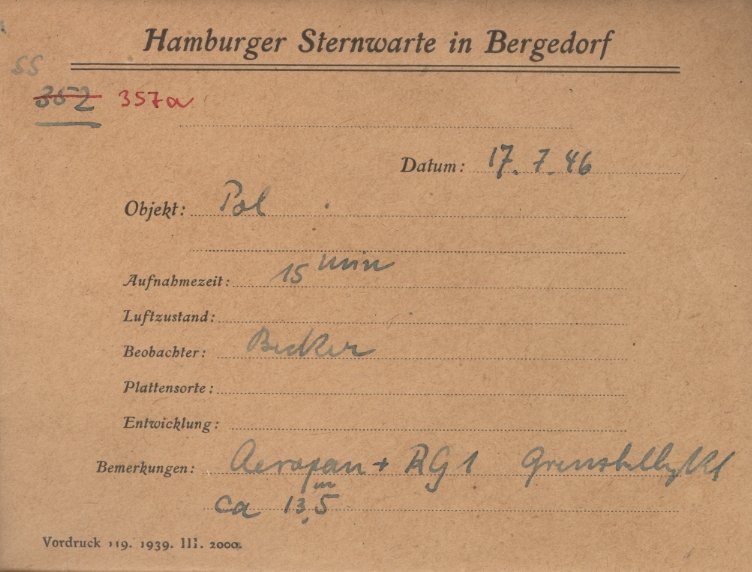 Hamburger Sternwarte in Bergedorf
SS
352 357a
Datum: 17.7.46
Objekt: Pol
Aufnahmezeit: 15 min
Luftzustand:
Beobachter: Becker
Plattensorte:
Entwicklung:
Bemerkungen: Aeropan + RG1
ca 13,5 m
Vordruck 119. 1939. III. 2000.